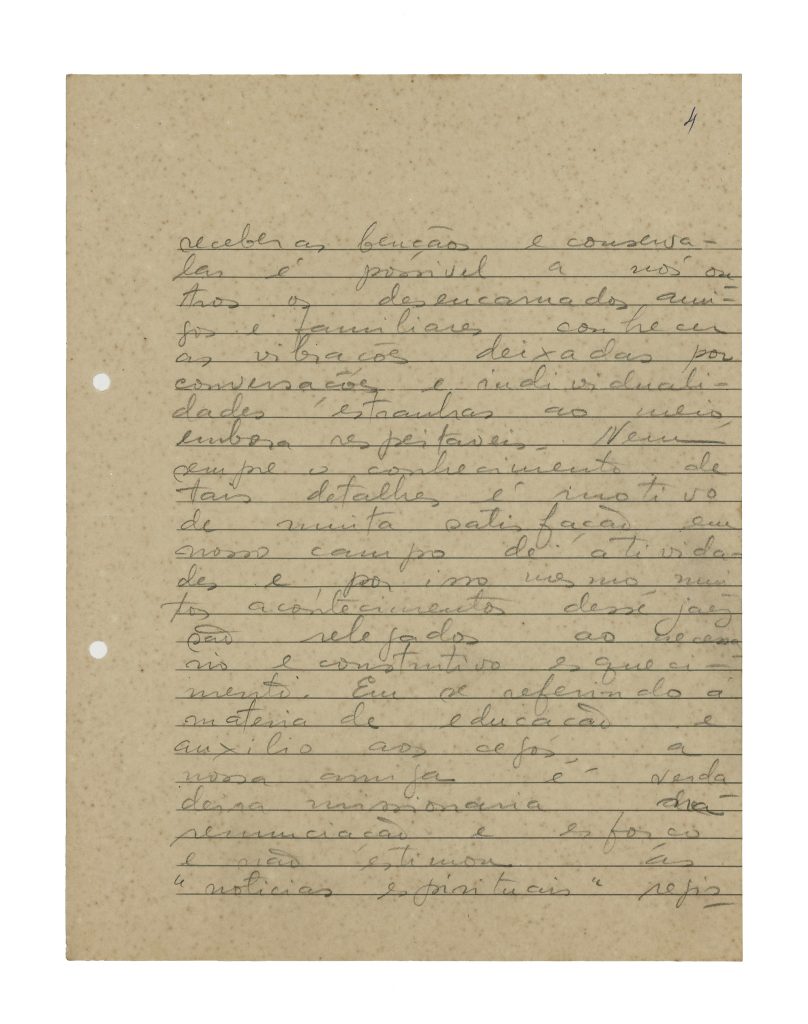 4
receber as bençãos e conserva-
las é possivel a nós ou
tros os desencarnados, ami-
gos e familiares conhecer
as vibrações deixadas por
conversações e individuali-
dades estranhas ao meio
embora respeitaveis. Nem
sempre o conhecimento de
tais detalhes é motivo
de muita satisfação em
nosso campo de ativida-
des e por isso mesmo mui
tos acontecimentos desse jaez
são relegados ao necessa
rio e construtivo esqueci-
mento. Em se referindo á
materia de educacão e
auxilio aos cegos, a
nossa amiga é verda
deira missionaria da
renunciacão e esforço
e não estimou as
"noticias espirituais" regis